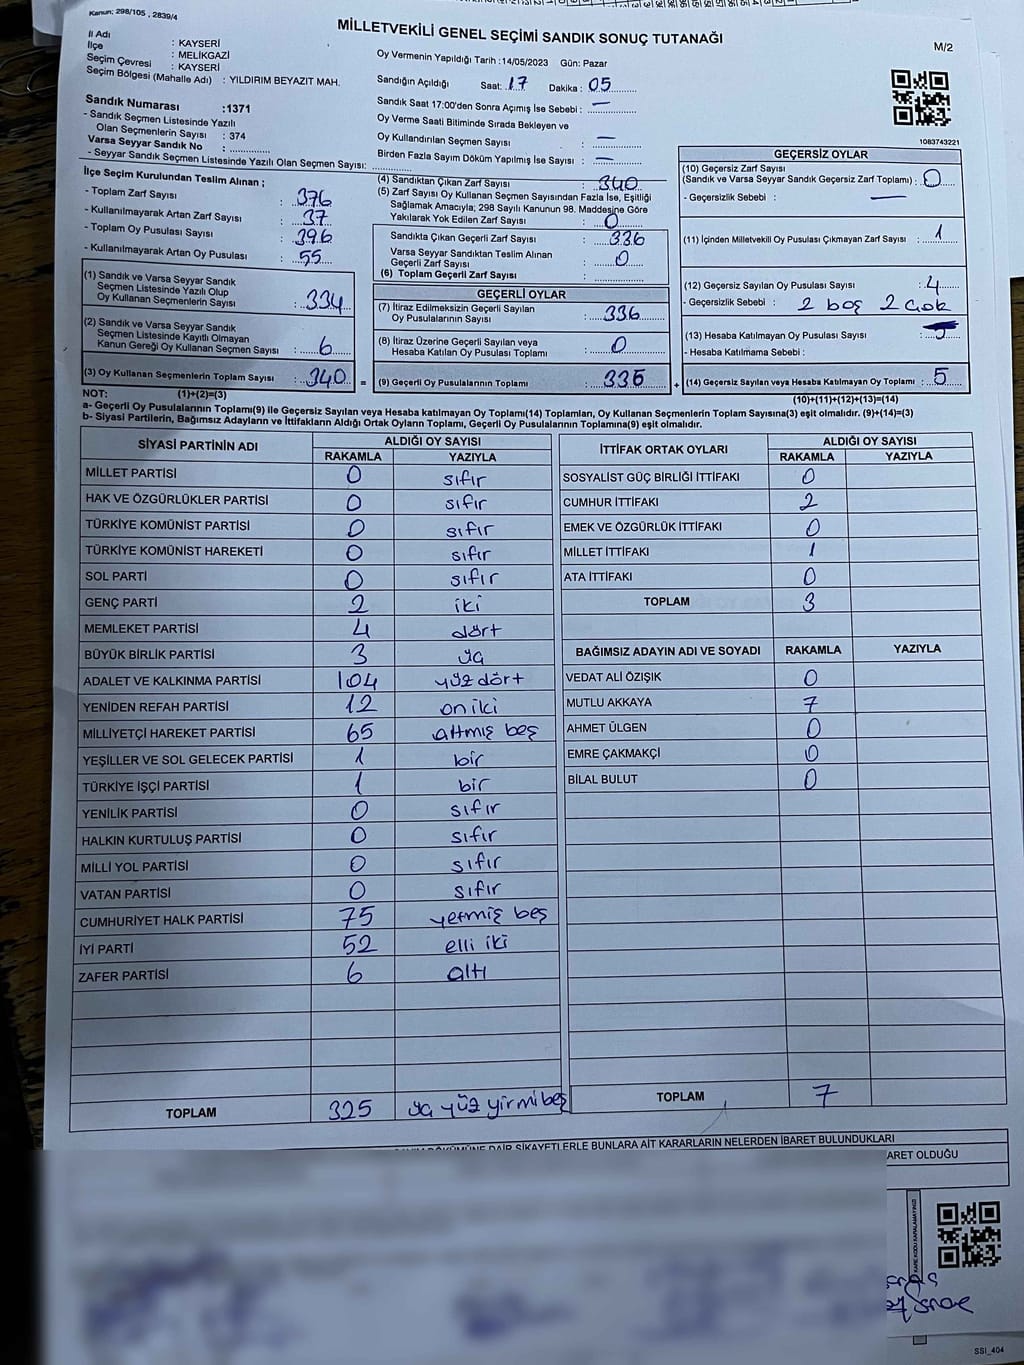 Kanun; 298/105 , 2839/4
MİLLETVEKİLİ GENEL SEÇİMİ SANDIK SONUÇ TUTANAĞI
M/2
İl Adı : KAYSERİ
İlçe : MELİKGAZİ
Seçim Çevresi : KAYSERİ
Seçim Bölgesi (Mahalle Adı) : YILDIRIM BEYAZIT MAH.
Sandık Numarası :1371
- Sandık Seçmen Listesinde Yazılı
Olan Seçmenlerin Sayısı : 374
Varsa Seyyar Sandık No :
- Seyyar Sandık Seçmen Listesinde Yazılı Olan Seçmen Sayısı:
Oy Vermenin Yapıldığı Tarih :14/05/2023 Gün: Pazar
Sandığın Açıldığı Saat: 17 Dakika : 05
Sandık Saat 17:00'den Sonra Açımış İse Sebebi : —
Oy Verme Saati Bitiminde Sırada Bekleyen ve
Oy Kullandırılan Seçmen Sayısı : —
Birden Fazla Sayım Döküm Yapılmış İse Sayısı : —
1083743221
İlçe Seçim Kurulundan Teslim Alınan ;
- Toplam Zarf Sayısı : 376
- Kullanılmayarak Artan Zarf Sayısı : 37
- Toplam Oy Pusulası Sayısı : 396
- Kullanılmayarak Artan Oy Pusulası : 55
(1) Sandık ve Varsa Seyyar Sandık
Seçmen Listesinde Yazılı Olup
Oy Kullanan Seçmenlerin Sayısı : 334
(2) Sandık ve Varsa Seyyar Sandık
Seçmen Listesinde Kayıtlı Olmayan
Kanun Gereği Oy Kullanan Seçmen Sayısı : 6
(3) Oy Kullanan Seçmenlerin Toplam Sayısı : 340 =
(4) Sandıktan Çıkan Zarf Sayısı : 340
(5) Zarf Sayısı Oy Kullanan Seçmen Sayısından Fazla İse, Eşitliği
Sağlamak Amacıyla; 298 Sayılı Kanunun 98. Maddesine Göre
Yakılarak Yok Edilen Zarf Sayısı : 0
Sandıkta Çıkan Geçerli Zarf Sayısı : 336
Varsa Seyyar Sandıktan Teslim Alınan
Geçerli Zarf Sayısı : 0
(6) Toplam Geçerli Zarf Sayısı :
GEÇERLİ OYLAR
(7) İtiraz Edilmeksizin Geçerli Sayılan
Oy Pusulalarının Sayısı : 336
(8) İtiraz Üzerine Geçerli Sayılan veya
Hesaba Katılan Oy Pusulası Toplamı : 0
(9) Geçerli Oy Pusulalarının Toplamı : 335 +
GEÇERSİZ OYLAR
(10) Geçersiz Zarf Sayısı
(Sandık ve Varsa Seyyar Sandık Geçersiz Zarf Toplamı) : 0
- Geçersizlik Sebebi : —
(11) İçinden Milletvekili Oy Pusulası Çıkmayan Zarf Sayısı : 1
(12) Geçersiz Sayılan Oy Pusulası Sayısı : 4
- Geçersizlik Sebebi : 2 boş 2 çok
(13) Hesaba Katılmayan Oy Pusulası Sayısı :
- Hesaba Katılmama Sebebi :
(14) Geçersiz Sayılan veya Hesaba Katılmayan Oy Toplamı : 5
NOT: (1)+(2)=(3)
(10)+(11)+(12)+(13)=(14)
a- Geçerli Oy Pusulalarının Toplamı(9) ile Geçersiz Sayılan veya Hesaba katılmayan Oy Toplamı(14) Toplamları, Oy Kullanan Seçmenlerin Toplam Sayısına(3) eşit olmalıdır. (9)+(14)=(3)
b- Siyasi Partilerin, Bağımsız Adayların ve İttifakların Aldığı Ortak Oyların Toplamı, Geçerli Oy Pusulalarının Toplamına(9) eşit olmalıdır.
SİYASİ PARTİNİN ADI ALDIĞI OY SAYISI
RAKAMLA YAZIYLA
MİLLET PARTİSİ 0 sıfır
HAK VE ÖZGÜRLÜKLER PARTİSİ 0 sıfır
TÜRKİYE KOMÜNİST PARTİSİ 0 sıfır
TÜRKİYE KOMÜNİST HAREKETİ 0 sıfır
SOL PARTİ 0 sıfır
GENÇ PARTİ 2 iki
MEMLEKET PARTİSİ 4 dört
BÜYÜK BİRLİK PARTİSİ 3 üç
ADALET VE KALKINMA PARTİSİ 104 yüz dört
YENİDEN REFAH PARTİSİ 12 on iki
MİLLİYETÇİ HAREKET PARTİSİ 65 altmış beş
YEŞİLLER VE SOL GELECEK PARTİSİ 1 bir
TÜRKİYE İŞÇİ PARTİSİ 1 bir
YENİLİK PARTİSİ 0 sıfır
HALKIN KURTULUŞ PARTİSİ 0 sıfır
MİLLİ YOL PARTİSİ 0 sıfır
VATAN PARTİSİ 0 sıfır
CUMHURİYET HALK PARTİSİ 75 yetmiş beş
İYİ PARTİ 52 elli iki
ZAFER PARTİSİ 6 altı
TOPLAM 325 üç yüz yirmi beş
İTTİFAK ORTAK OYLARI ALDIĞI OY SAYISI
RAKAMLA YAZIYLA
SOSYALİST GÜÇ BİRLİĞİ İTTİFAKI 0
CUMHUR İTTİFAKI 2
EMEK VE ÖZGÜRLÜK İTTİFAKI 0
MİLLET İTTİFAKI 1
ATA İTTİFAKI 0
TOPLAM 3
BAĞIMSIZ ADAYIN ADI VE SOYADI RAKAMLA YAZIYLA
VEDAT ALİ ÖZIŞIK 0
MUTLU AKKAYA 7
AHMET ÜLGEN 0
EMRE ÇAKMAKÇİ 0
BİLAL BULUT 0
TOPLAM 7
DÖKÜMÜNE DAİR ŞİKAYETLERLE BUNLARA AİT KARARLARIN NELERDEN İBARET BULUNDUKLARI
ARET OLDUĞU
KARE KODU KARALAMAYINIZ
SSI_404